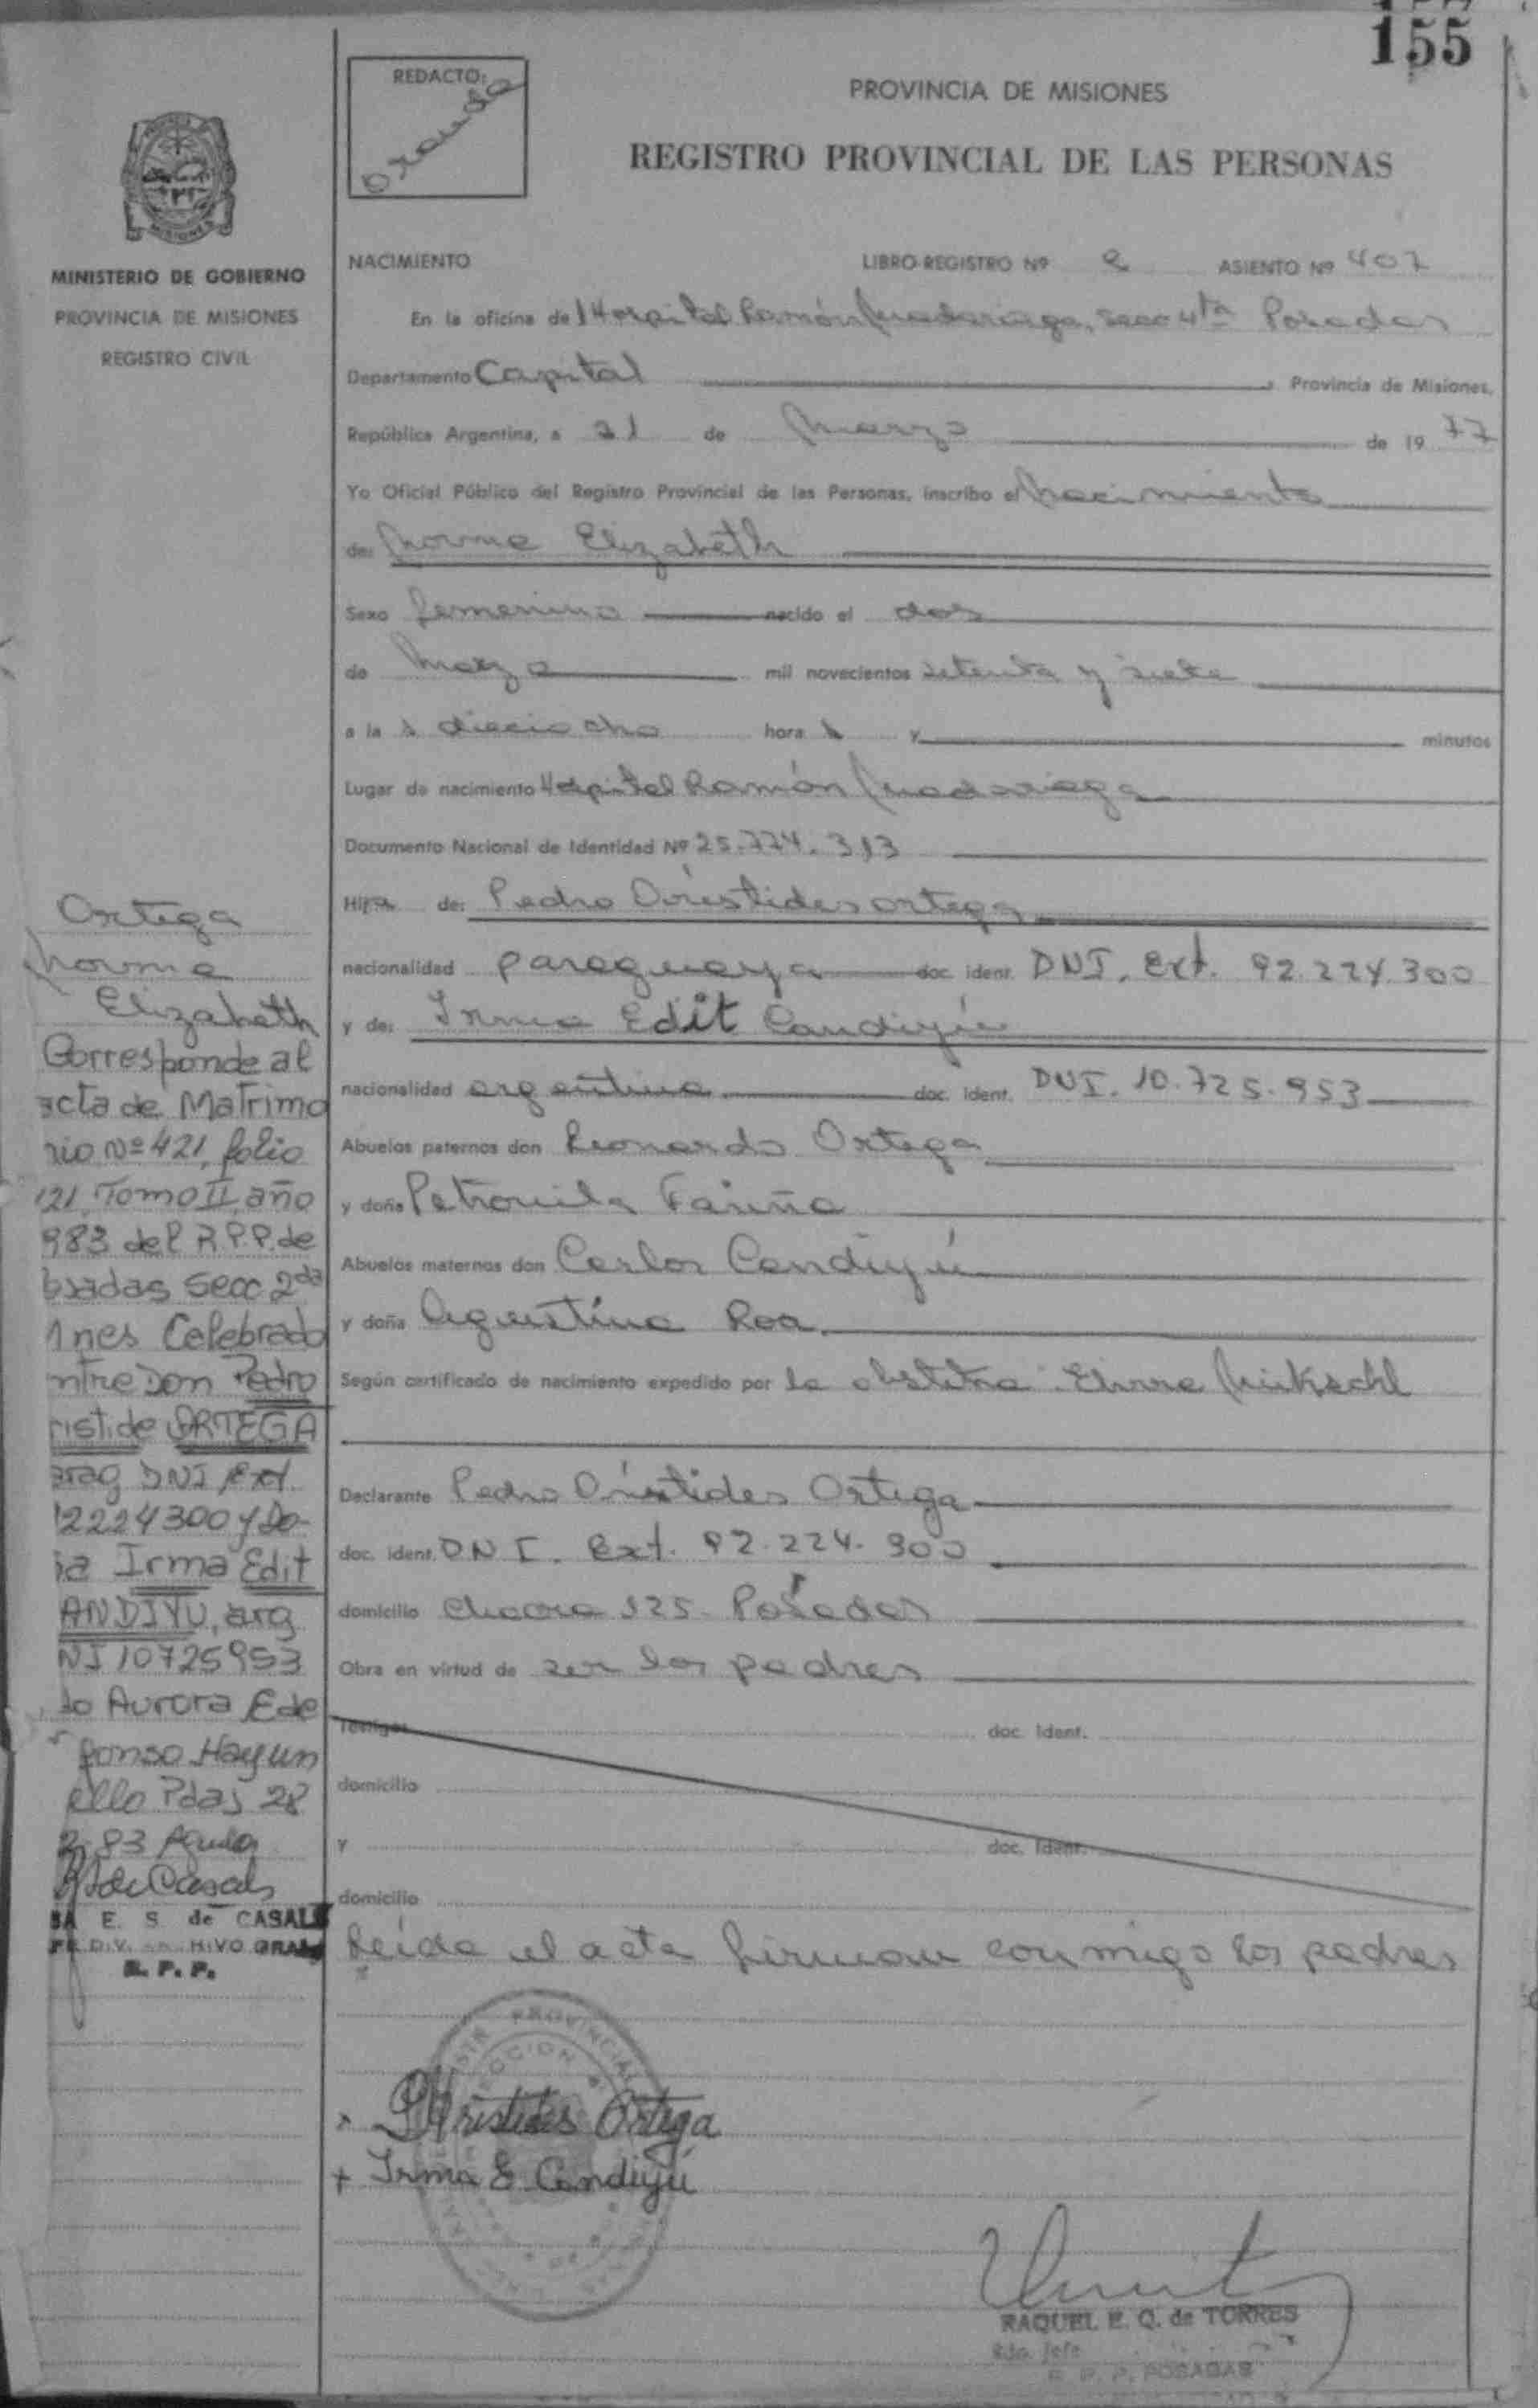 155
REDACTO:
PROVINCIA DE MISIONES
REGISTRO PROVINCIAL DE LAS PERSONAS
MINISTERIO DE GOBIERNO
PROVINCIA DE MISIONES
REGISTRO CIVIL
NACIMIENTO LIBRO REGISTRO Nº 2 ASIENTO Nº 407
En la oficina del Hospital Ramón Madariaga, Secc 4ta Posadas
Departamento Capital, Provincia de Misiones,
República Argentina, a 21 de Marzo de 1977
Yo Oficial Público del Registro Provincial de las Personas, inscribo el Nacimiento
de: Norma Elizabeth
Sexo femenino nacido el dos
de Marzo mil novecientos setenta y siete
a las dieciocho horas y minutos
Lugar de nacimiento Hospital Ramón Madariaga
Documento Nacional de Identidad Nº 25.774.313
Hija de: Pedro Arístides Ortega
nacionalidad paraguaya doc. ident. DNI. Ext. 92.224.300
y de: Irma Edit Candiyú
nacionalidad argentina doc. ident. DNI. 10.725.953
Abuelos paternos don Leonardo Ortega
y doña Petronila Fariña
Abuelos maternos don Carlos Candiyú
y doña Agustina Roa
Según certificado de nacimiento expedido por la obstetra
Declarante Pedro Arístides Ortega
doc. ident. DNI. Ext. 92.224.300
domicilio Chacra 125 Posadas
Obra en virtud de ser los padres
Testigos doc. ident.
domicilio
y doc. ident.
domicilio
Leída el acta firman conmigo los padres
Ortega
Norma
Elizabeth
Corresponde al
acta de Matrimo
nio Nº 421, folio
121, Tomo II, año
983 del R.P.P. de
osadas Secc 2da
nes Celebrado
ntre Don Pedro
ristide ORTEGA
arag DNI Ext.
2224300 y Do-
ia Irma Edit
ANDIYU, arg
NI 10725953
do Aurora Ede
fonso Hay un
ello Pdas 28
83
de Casals
SA E. S. de CASALS
DIV. HIVO GRAL
R. P. P.
P Aristides Ortega
+ Irma E Candiyú
RAQUEL E. Q. de TORRES
Jefe
R. P. P. POSADAS